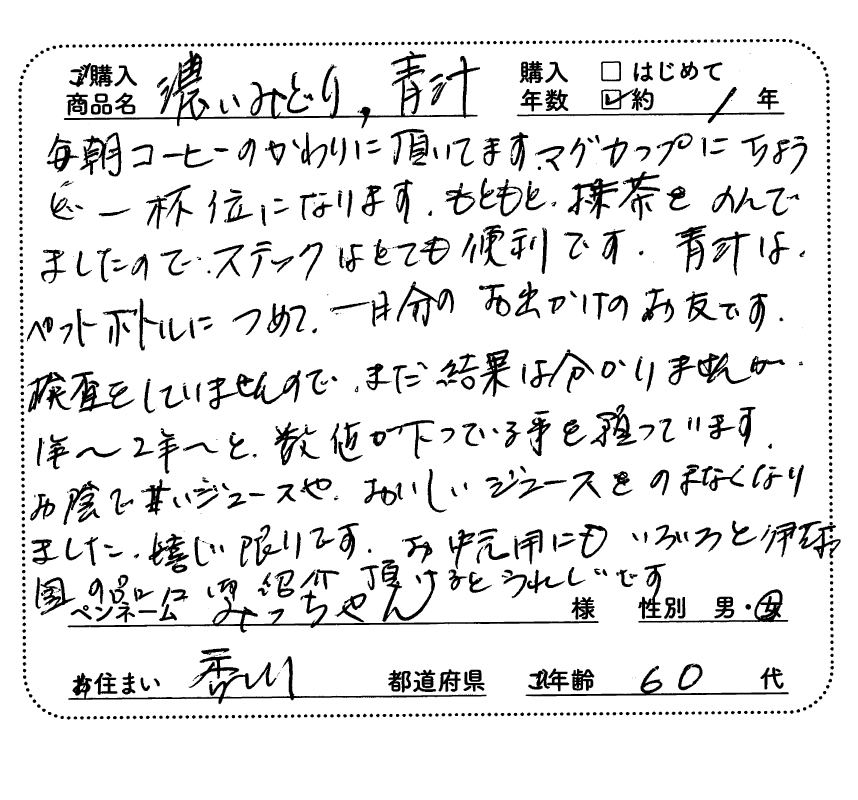 ご購入商品名 濃いみどり,青汁 購入年数 □はじめて ☑約 1 年
毎朝コーヒーのかわりに頂いてます。マグカップにちょう
ど一杯位になります。もともと、抹茶をのんで
ましたので、スティックはとても便利です。青汁は、
ペットボトルにつめて、一日分のお出かけのお友です。
検査をしていませんので、まだ結果は分かりませんが、
1年〜2年〜と、数値が下っている事を願っています。
お陰で甘いジュースや、おいしいジュースをのまなくなり
ました。嬉しい限りです。お中元用にもいろいろと伊藤
園の品口口ご紹介頂けるとうれしいです
ペンネーム みっちゃん 様 性別 男・女
お住まい 香川 都道府県 ご年齢 60 代